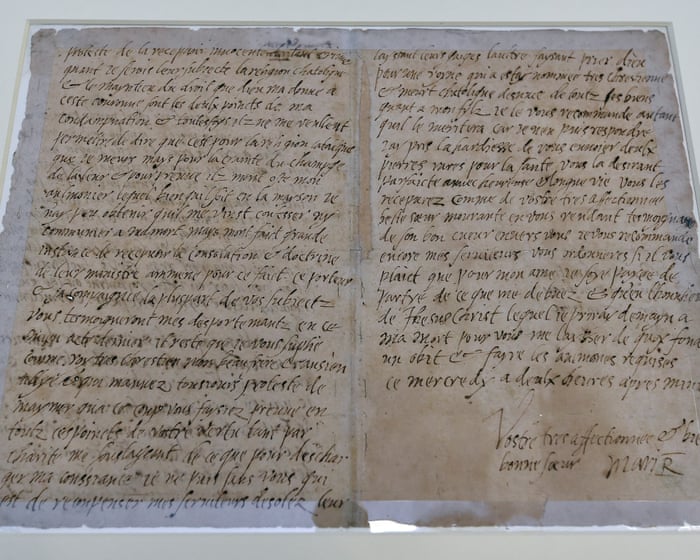 proteste de la recepvoir innocente
quant je serois leur subjecte la religion chatolique
& le mayntien du droit que dieu ma donne a
ceste couronne sont les deulx poincts de ma
condampnation & toutesfoys ilz ne me veullent
permettre de dire que cest pour la religion catolique
que je meurs mays pour la crainte du champge
de la leur & pour preuve ilz mont oste mon
aulmonier lequel bien quil soit en la mayson je
nay peu obtenir quil me vinst confesser ny
communier a ma mort mays mont fait grande
instance de recepvoir la consolation & doctrine
de leur ministre ammene pour ce fait ce porteur
& sa compaignie la pluspart de vos subjectz
vous tesmoigneront mes desportemantz en ce
mien acte dernier il reste que je vous suplie
comme roy tres crestien mon beaufrere & ansien
allye & qui mavvez tousjours proteste de
maymer qua ce coup vous faysiez preuve en
toutz ces poincts de vostre vertu tant par
charite me soulageant de ce que pour descharger
ma conssiance je ne puis sans vous qui
est de recompenser mes serviteurs desolez leur
layssant leurs gaiges laultre faysant prier dieu
pour une royne qui a estay nommee tres crestienne
& meurt chatolique desnuee de toutz ses biens
quant a mon filz je le vous recommande autant
quil le meritera car je nen puis respondre
jay pris la hardiesse de vous envoier deulx
pierres rares pour la sante vous la desirant
parfaicte avvec heureuse & longue vie vous les
recepvrez comme de vostre tres affectionnee
belle sœur mourante en vous rendant tesmoygnage
de son bon cueur envers vous je vous recommande
encore mes serviteurs vous ordonnerez si il vous
plaict que pour mon ame je soye payee de
partye de ce que me debvez & quen lhonneur
de Jhesus Christ lequel je priray demayn a
ma mort pour vous me laysser de quoy fonder
un obit & fayre les aumosnes requises
ce mercredy a deulx heures apres minuit
Vostre tres affectionnee & bien
bonne sœur Mari R